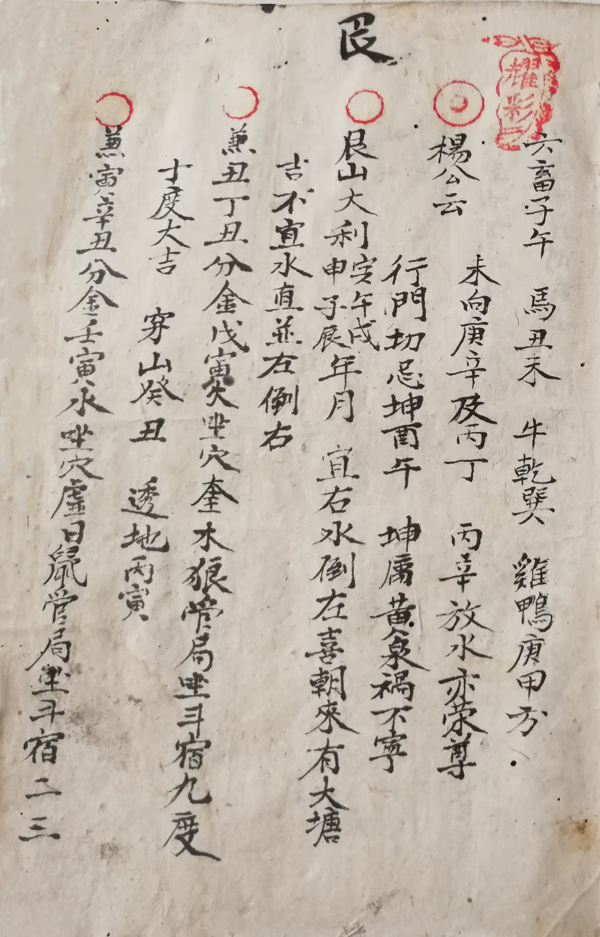 艮
六畜子午 馬丑未 牛乾巽 雞鴨庚甲方
楊公云 未向庚辛及丙丁 丙辛放水亦荣尊
行門切忌坤酉午 坤庚黄泉禍不寧
艮山大利寅午戌申子辰年月 宜右水倒左喜朝來有大塘
吉不宜水直並左倒右
兼丑丁丑分金戊寅火坐穴奎木狼管局坐斗宿九度
十度大吉 穿山癸丑 透地丙寅
兼寅辛丑分金壬寅水坐穴虛日鼠管局坐斗宿二三
耀彩